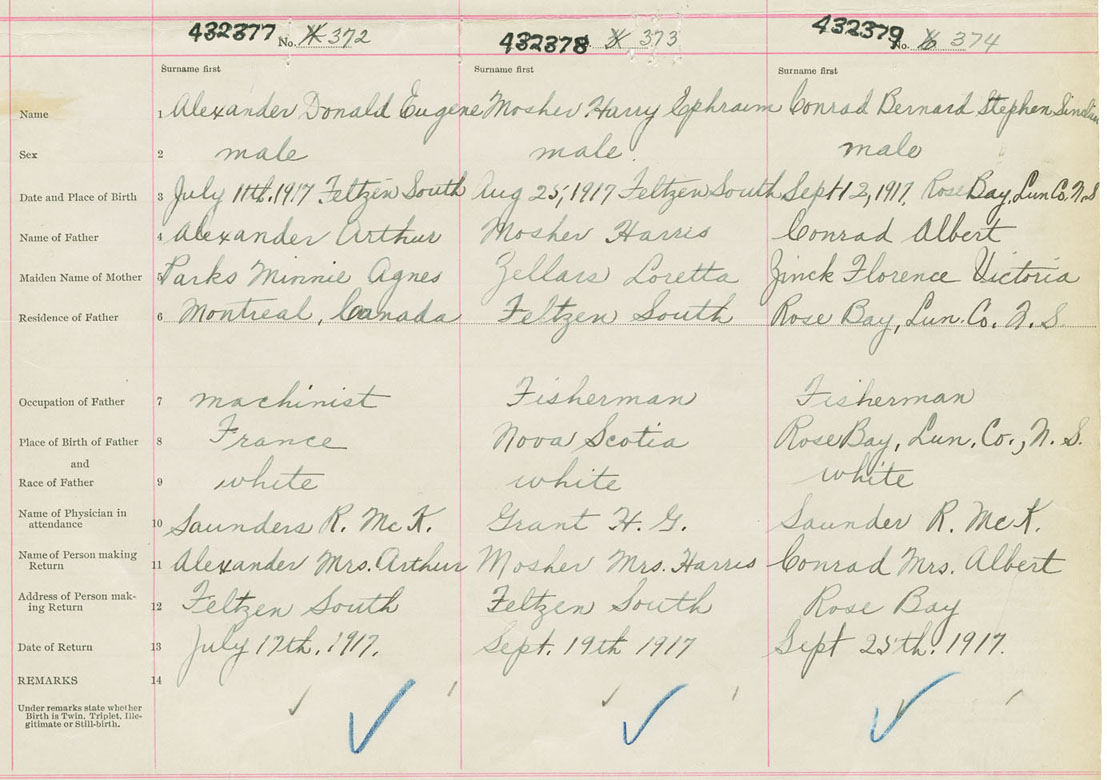 432377 No. 372 432378 373 432379 No. 374
Surname first Surname first Surname first
Name 1 Alexander Donald Eugene Mosher Harry Ephraim Conrad Bernard Stephen Sinclair
Sex 2 male male. male
Date and Place of Birth 3 July 11th. 1917 Feltzen South Aug 25, 1917 Feltzen South Sept 12, 1917. Rose Bay, Lun Co. N.S
Name of Father 4 Alexander Arthur Mosher Harris Conrad Albert
Maiden Name of Mother 5 Parks Minnie Agnes Zellars Loretta Zinck Florence Victoria
Residence of Father 6 Montreal, Canada Feltzen South Rose Bay, Lun. Co. N. S.
Occupation of Father 7 machinist Fisherman Fisherman
Place of Birth of Father 8 France Nova Scotia Rose Bay, Lun. Co., N. S.
and
Race of Father 9 white white white
Name of Physician in
attendance 10 Saunders R. McK. Grant H. G. Saunder R. McK.
Name of Person making
Return 11 Alexander Mrs. Arthur Mosher Mrs. Harris Conrad Mrs. Albert
Address of Person mak-
ing Return 12 Feltzen South Feltzen South Rose Bay
Date of Return 13 July 17th. 1917. Sept. 19th 1917 Sept 25th. 1917.
REMARKS 14
Under remarks state whether
Birth is Twin, Triplet, Ille-
gitimate or Still-birth.